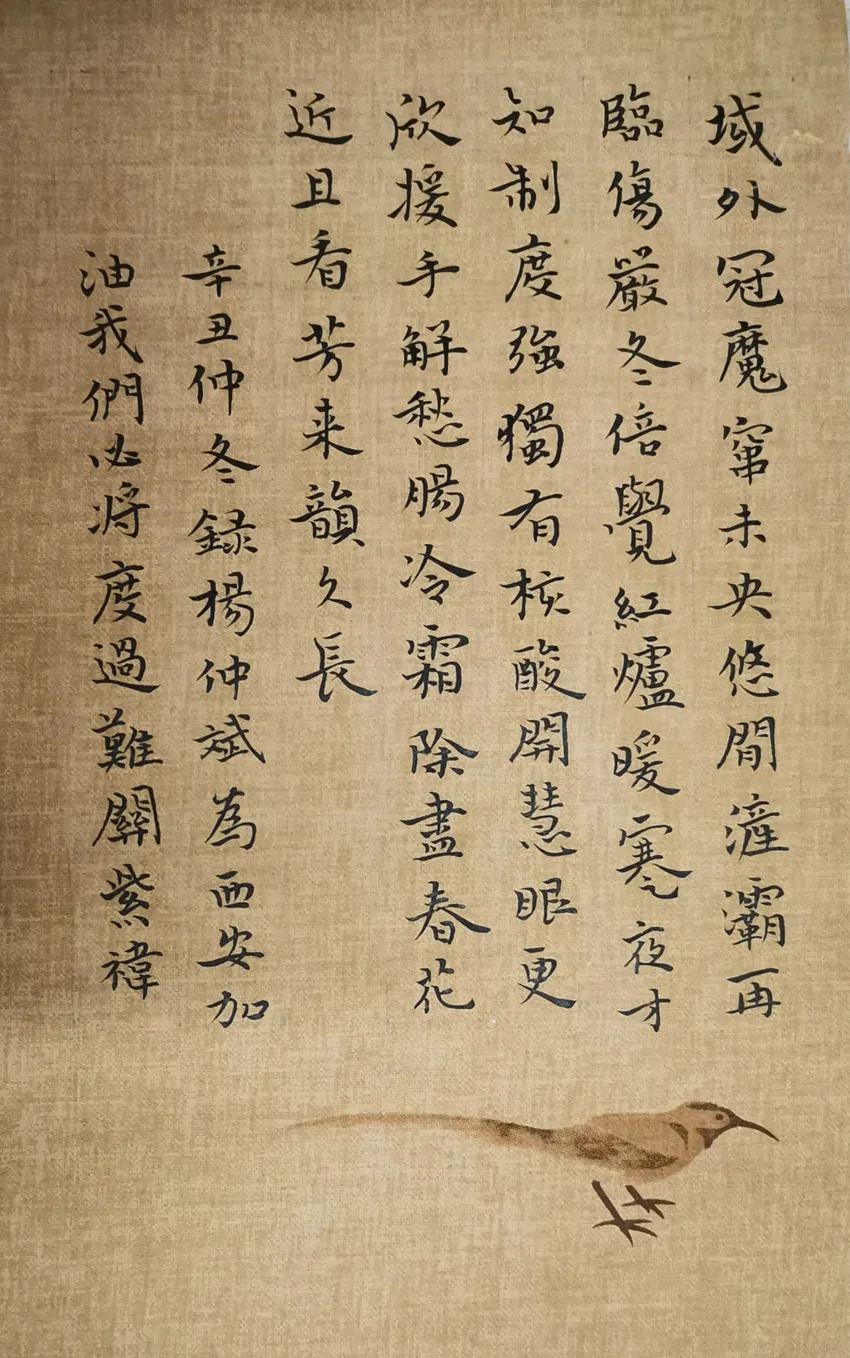 域外冠魔窜未央悠間滻灞再
臨傷嚴冬倍覺紅爐暖寒夜才
知制度強獨有核酸開慧眼更
欣援手解愁腸冷霜除盡春花
近且看芳来韻久長
辛丑仲冬録楊仲斌為西安加
油我們必将度過難關紫禕